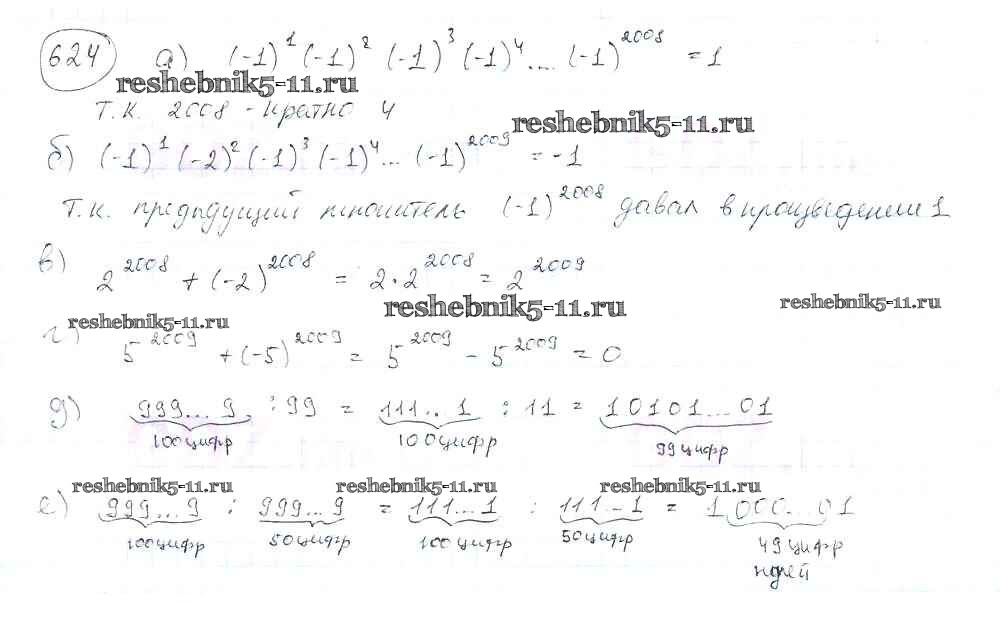 624 а) (-1)¹ (-1)² (-1)³ (-1)⁴ .... (-1)²⁰⁰⁸ = 1
reshebnik5-11.ru
т.к. 2008 - кратно 4
reshebnik5-11.ru
б) (-1)¹ (-2)² (-1)³ (-1)⁴ ... (-1)²⁰⁰⁹ = -1
т.к. предыдущий множитель (-1)²⁰⁰⁸ давал в произведении 1
в) 2²⁰⁰⁸ + (-2)²⁰⁰⁸ = 2·2²⁰⁰⁸ = 2²⁰⁰⁹
reshebnik5-11.ru reshebnik5-11.ru reshebnik5-11.ru
г) 5²⁰⁰⁹ + (-5)²⁰⁰⁹ = 5²⁰⁰⁹ - 5²⁰⁰⁹ = 0
д) 999... 9 : 99 = 111... 1 : 11 = 10101...01
100 цифр 100 цифр 99 цифр
reshebnik5-11.ru reshebnik5-11.ru reshebnik5-11.ru
е) 999...9 : 999...9 = 111...1 : 111...1 = 1000...01
100 цифр 50 цифр 100 цифр 50 цифр 49 цифр
нулей